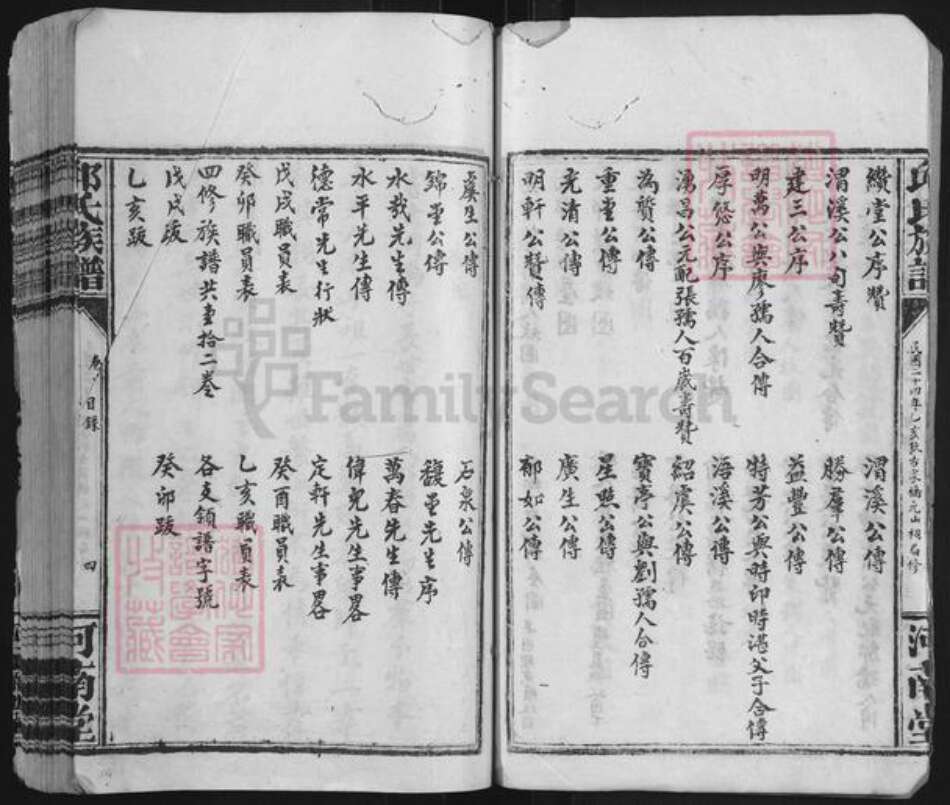 纘堂公序贊
渭溪公傳
渭溪公八旬壽贊
勝羣公傳
建三公序
益豐公傳
明萬公與廖孺人合傳
特芳公與時印時湛父子合傳
厚悠公序
海溪公傳
湧昌公元配張孺人百歲壽贊
紹虞公傳
為贊公傳
寶亭公與劉孺人合傳
重堂公傳
星照公傳
光清公傳
廣生公傳
明軒公贊傳
郁如公傳
虞生公傳
石泉公傳
錦堂公傳
馥堂先生序
水哉先生傳
萬春先生傳
水平先生傳
偉兒先生事畧
德常先生行狀
定軒先生事畧
戊戌職員表
癸酉職員表
癸卯職員表
乙亥職員表
四修族譜共壹拾二卷
各支領譜字號
戊戌跋
癸卯跋
乙亥跋
邱氏族譜
民國二十四年乙亥
河南堂
邱氏族譜
目錄
四
河南堂
FamilySearch